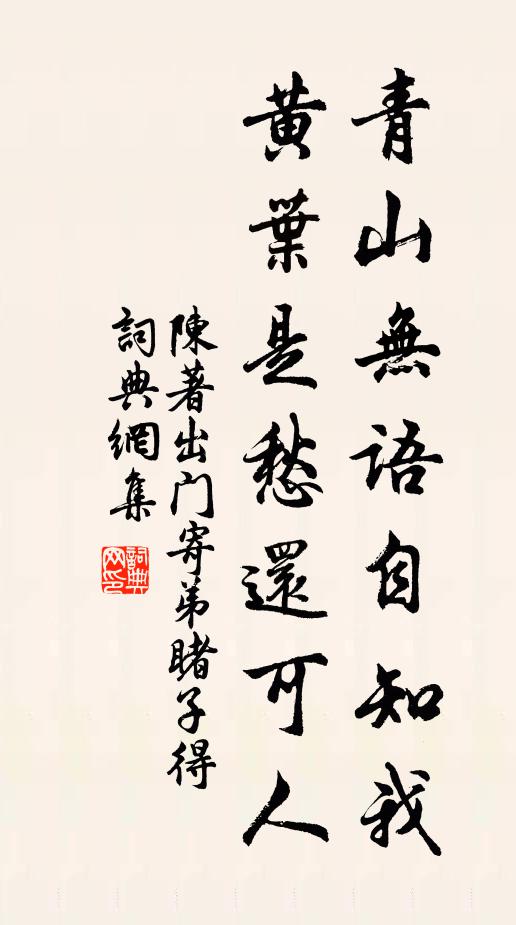 青山無語自知我
黃葉是愁還可人
陳著出门寄弟睹子得
詞典網集
詞典网印